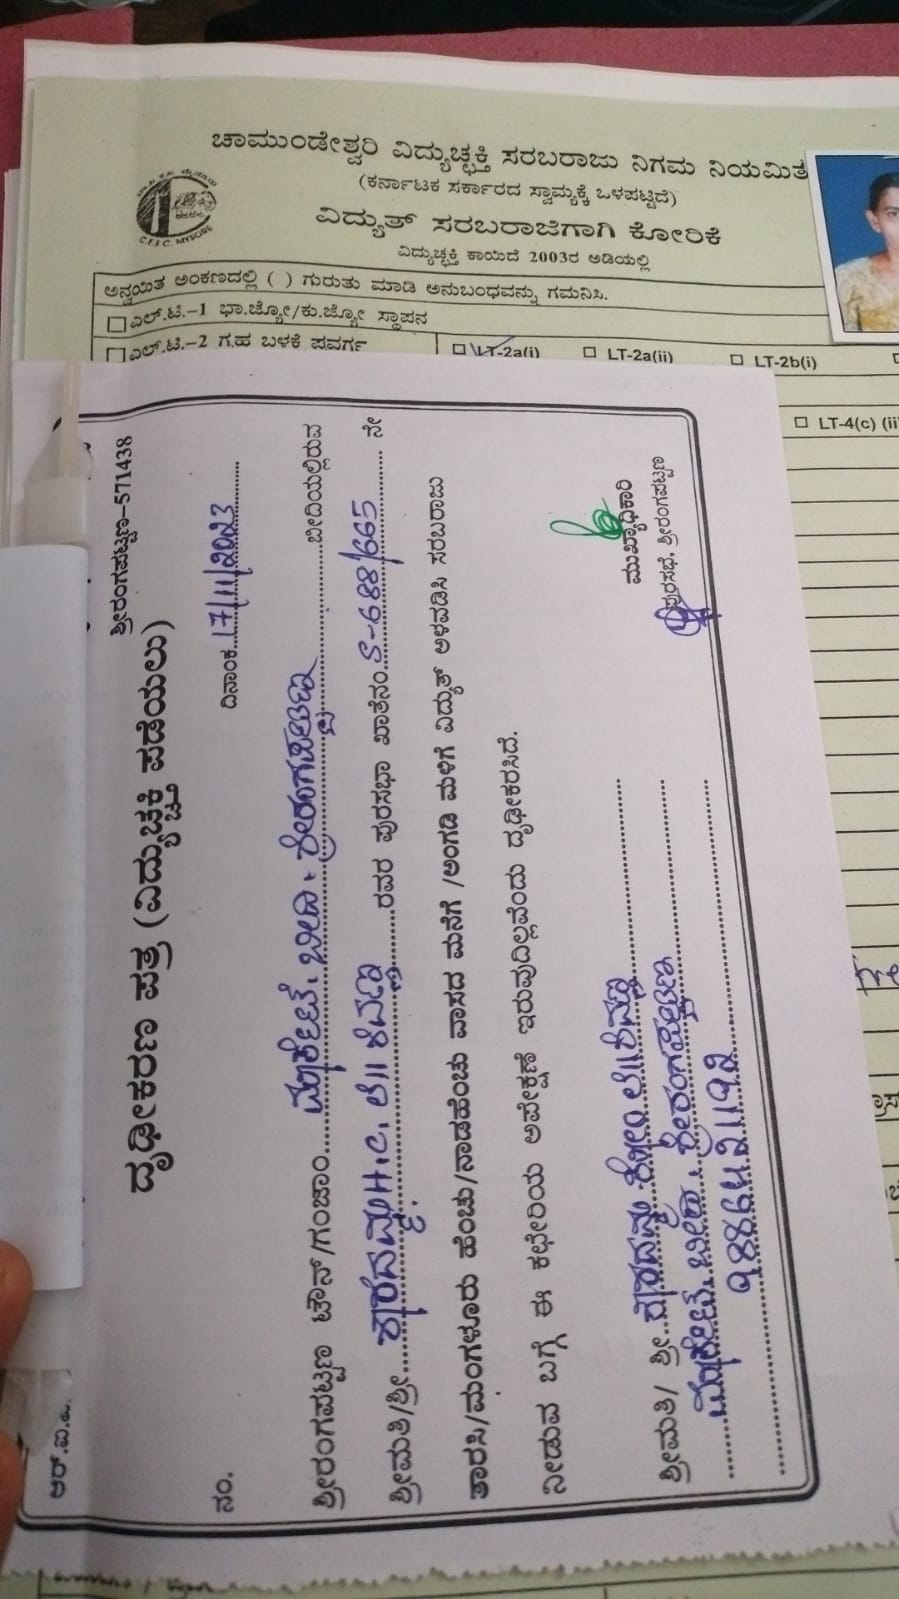 ಚಾಮುಂಡೇಶ್ವರಿ ವಿದ್ಯುಚ್ಛಕ್ತಿ ಸರಬರಾಜು ನಿಗಮ ನಿಯಮಿತ
(ಕರ್ನಾಟಕ ಸರ್ಕಾರದ ಸ್ವಾಮ್ಯಕ್ಕೆ ಒಳಪಟ್ಟಿದೆ)
ವಿದ್ಯುತ್ ಸರಬರಾಜಿಗಾಗಿ ಕೋರಿಕೆ
ವಿದ್ಯುಚ್ಛಕ್ತಿ ಕಾಯಿದೆ 2003ರ ಅಡಿಯಲ್ಲಿ
C.E.S.C. MYSORE
ಅನ್ವಯಿತ ಅಂಕಣದಲ್ಲಿ ( ) ಗುರುತು ಮಾಡಿ ಅನುಬಂಧವನ್ನು ಗಮನಿಸಿ.
ಎಲ್.ಟಿ.-1 ಭಾ.ಜ್ಯೋ/ಕು.ಜ್ಯೋ ಸ್ಥಾಪನ
ಎಲ್.ಟಿ.-2 ಗೃಹ ಬಳಕೆ ಪವರ್ಗ LT-2a(i) LT-2a(ii) LT-2b(i)
LT-4(c) (ii
ಆರ್.ಐ.ಎ.
ಶ್ರೀರಂಗಪಟ್ಟಣ-571438
ದೃಢೀಕರಣ ಪತ್ರ (ವಿದ್ಯುಚ್ಛಕ್ತಿ ಪಡೆಯಲು)
ನಂ. ದಿನಾಂಕ..17/11/2023
ಶ್ರೀರಂಗಪಟ್ಟಣ ಟೌನ್/ಗಂಜಾಂ.....ಮಾರ್ಕೇಟ್ ಬೀದಿ, ಶ್ರೀರಂಗಪಟ್ಟಣ.....ಬೀದಿಯಲ್ಲಿರುವ
ಶ್ರೀಮತಿ/ಶ್ರೀ.....ಶಾರದಮ್ಮ H.C.....ರವರ ಪುರಸಭಾ ಖಾತೆನಂ.S-688/665.....ನೇ
ತಾರಸಿ/ಮಂಗಳೂರು ಹೆಂಚು/ನಾಡಹೆಂಚು ವಾಸದ ಮನೆಗೆ /ಅಂಗಡಿ ಮಳಿಗೆ ವಿದ್ಯುತ್ ಅಳವಡಿಸಿ ಸರಬರಾಜು
ನೀಡುವ ಬಗ್ಗೆ ಈ ಕಛೇರಿಯ ಅಪೇಕ್ಷಣೆ ಇರುವುದಿಲ್ಲವೆಂದು ದೃಢೀಕರಿಸಿದೆ.
ಮುಖ್ಯಾಧಿಕಾರಿ
ಪುರಸಭೆ, ಶ್ರೀರಂಗಪಟ್ಟಣ
ಶ್ರೀಮತಿ/ ಶ್ರೀ..ಶಾರದಮ್ಮ
ಮಾರ್ಕೇಟ್ ಬೀದಿ, ಶ್ರೀರಂಗಪಟ್ಟಣ